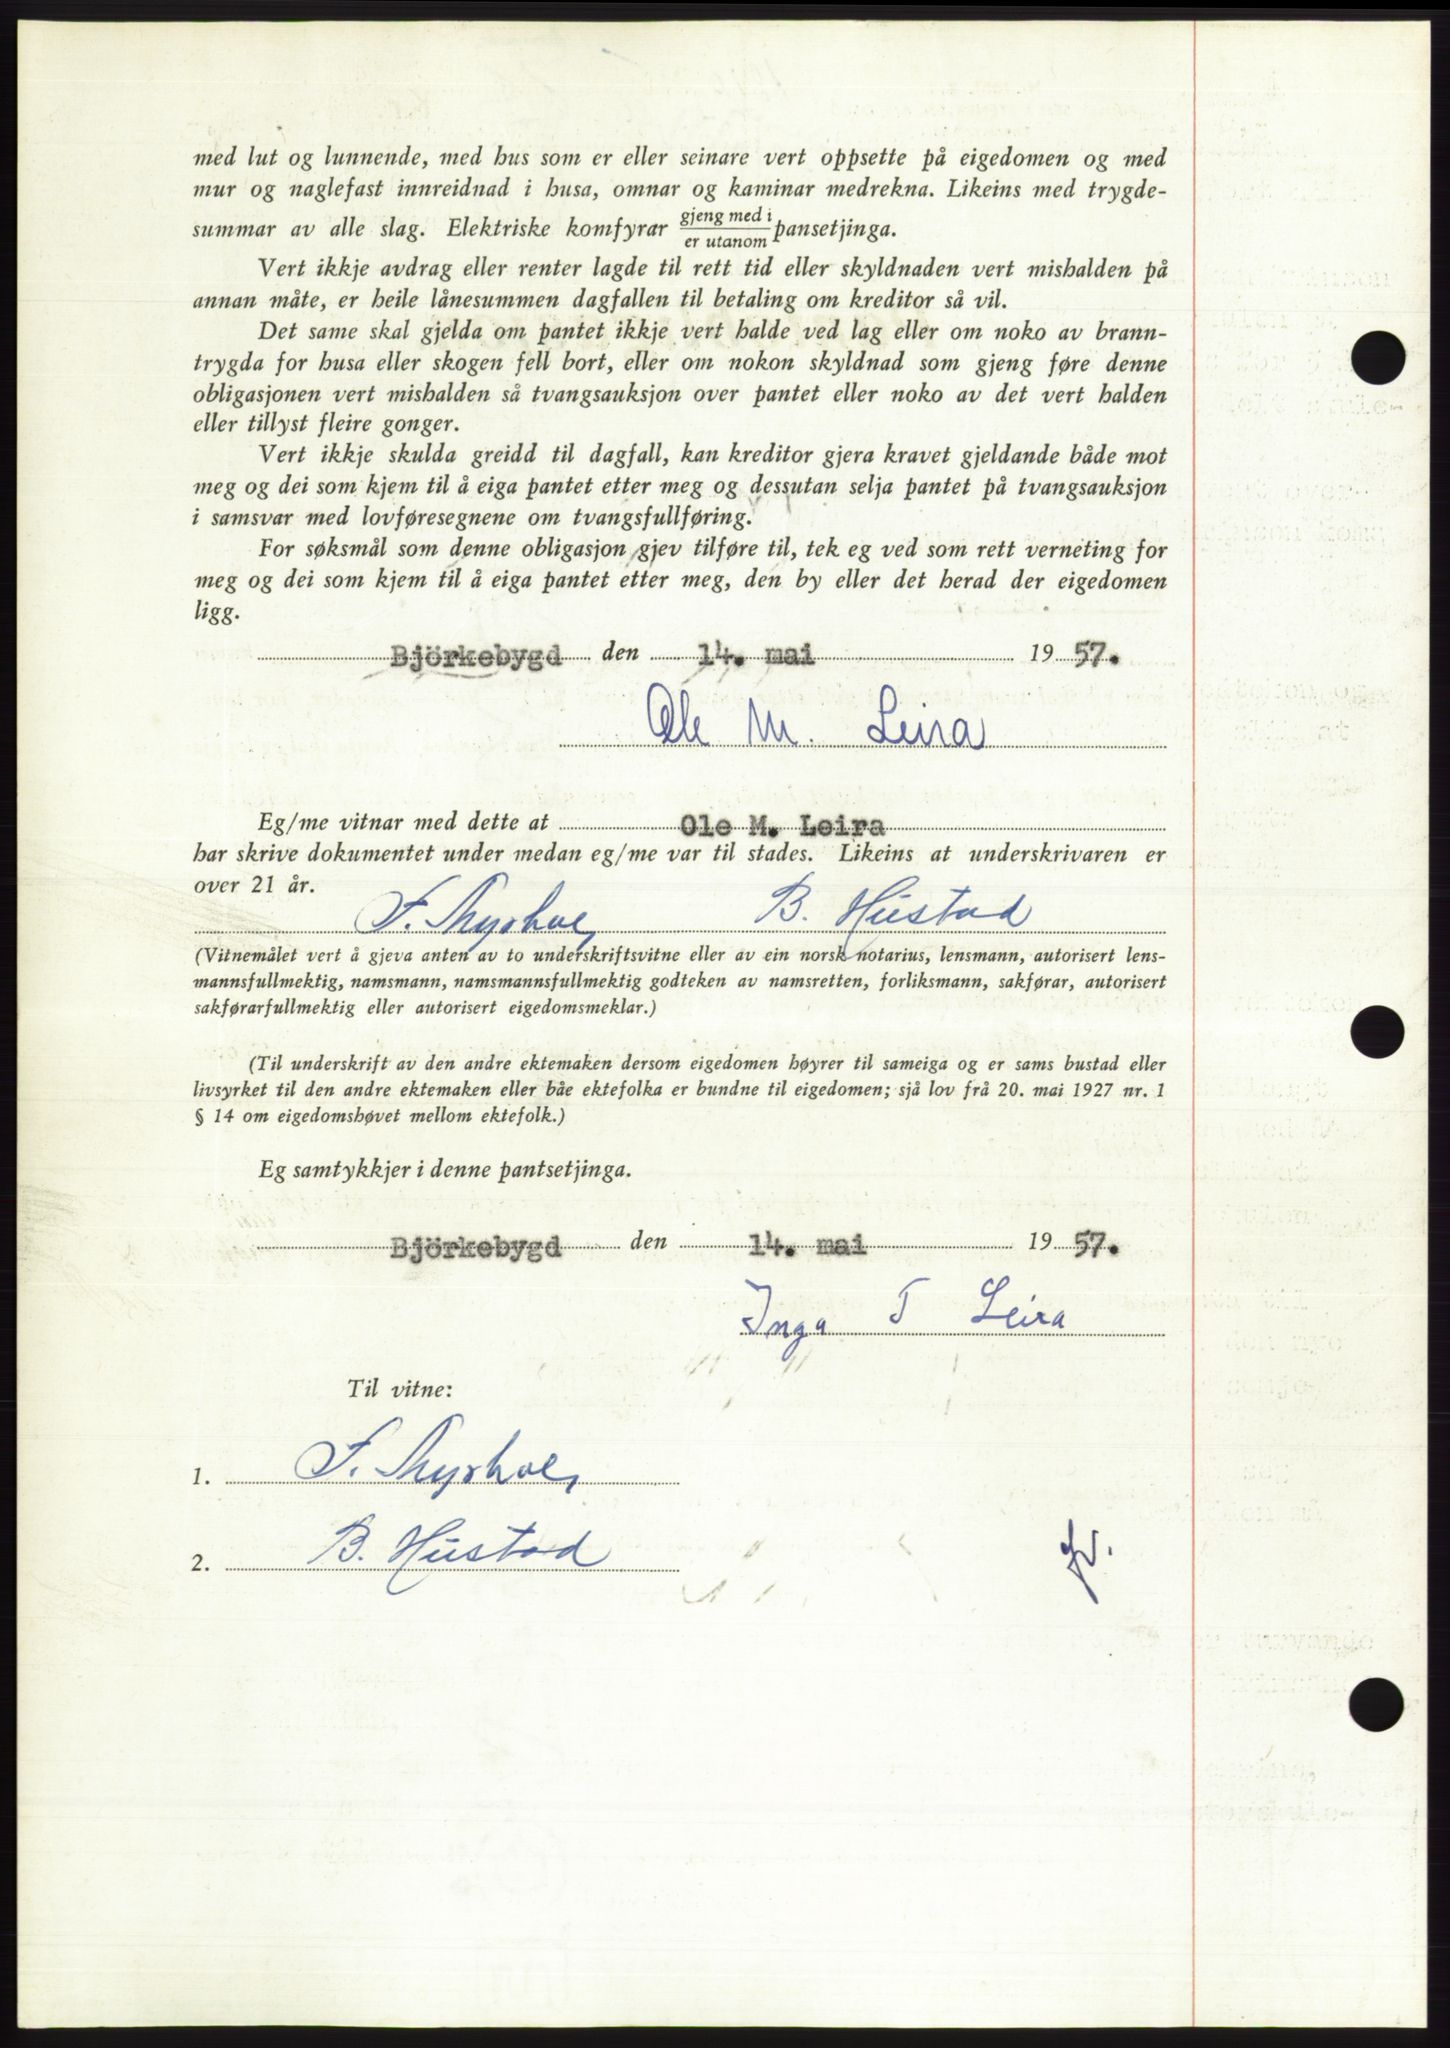 med lut og lunnende, med hus som er eller seinare vert oppsette på eigedomen og med
mur og naglefast innreidnad i husa, omnar og kaminar medrekna. Likeins med trygde-
summar av alle slag. Elektriske komfyrar gjeng med i / er utanom pansetjinga.
Vert ikkje avdrag eller renter lagde til rett tid eller skyldnaden vert mishalden på
annan måte, er heile lånesummen dagfallen til betaling om kreditor så vil.
Det same skal gjelda om pantet ikkje vert halde ved lag eller om noko av brann-
trygda for husa eller skogen fell bort, eller om nokon skyldnad som gjeng føre denne
obligasjonen vert mishalden så tvangsauksjon over pantet eller noko av det vert halden
eller tillyst fleire gonger.
Vert ikkje skulda greidd til dagfall, kan kreditor gjera kravet gjeldande både mot
meg og dei som kjem til å eiga pantet etter meg og dessutan selja pantet på tvangsauksjon
i samsvar med lovføresegnene om tvangsfullføring.
For søksmål som denne obligasjon gjev tilføre til, tek eg ved som rett verneting for
meg og dei som kjem til å eiga pantet etter meg, den by eller det herad der eigedomen
ligg.
Björkebygd den 14. mai 1957.
Ole M. Leira
Eg/me vitnar med dette at Ole M. Leira
har skrive dokumentet under medan eg/me var til stades. Likeins at underskrivaren er
over 21 år.
B. Hustad
(Vitnemålet vert å gjeva anten av to underskriftsvitne eller av ein norsk notarius, lensmann, autorisert lens-
mannsfullmektig, namsmann, namsmannsfullmektig godteken av namsretten, forliksmann, sakførar, autorisert
sakførarfullmektig eller autorisert eigedomsmeklar.)
(Til underskrift av den andre ektemaken dersom eigedomen høyrer til sameiga og er sams bustad eller
livsyrket til den andre ektemaken eller båe ektefolka er bundne til eigedomen; sjå lov frå 20. mai 1927 nr. 1
§ 14 om eigedomshøvet mellom ektefolk.)
Eg samtykkjer i denne pantsetjinga.
Björkebygd den 14. mai 1957.
Inga T Leira
Til vitne:
1.
2. B. Hustad